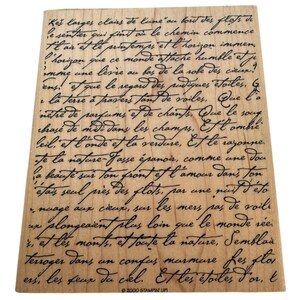 Les larges clairs de lune au bord des flots de
le sentier qui finit où le chemin commence
l'air et le printemps et l'horizon immen
l'horizon que ce monde attache humble et jo
omme une lèvre au bas de la robe des cieux
ens. et que le regard des pudiques étoiles. Q
la terre à travers tant de voiles. Que l'
nétré de parfums et de chants. Que le sou
brasé de midi dans les champs. Et l'ombre
leil, et l'onde et la verdure. Et le rayonne
te la nature Fasse épanouir, comme une dou
la beauté sur ton front et l'amour dans ton
étais seul près des flots, par une nuit d'éto
nuage aux cieux, sur les mers pas de voil
ux plongeaient plus loin que le monde réel
et les monts, et toute la nature, Semblai
terroger dans un confus murmure Les flots
ers, les feux du ciel. Et les étoiles d'or, l
© 2000 STAMPIN' UP!